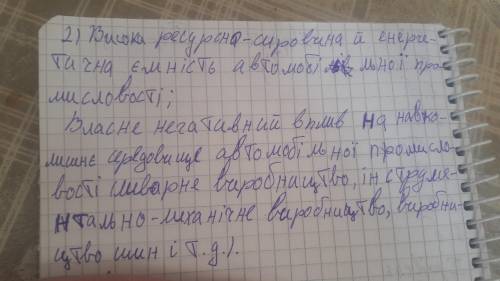 2) Висока ресурсно-сировина й енерге-
тична ємність автомобільної про
мисловості;
Власне негативний вплив на навко-
лишнє середовище автомобільної промисло-
вості ливарне виробництво, інструме-
нтально-механічне виробництво, виробни-
цтво шин і т.д.).